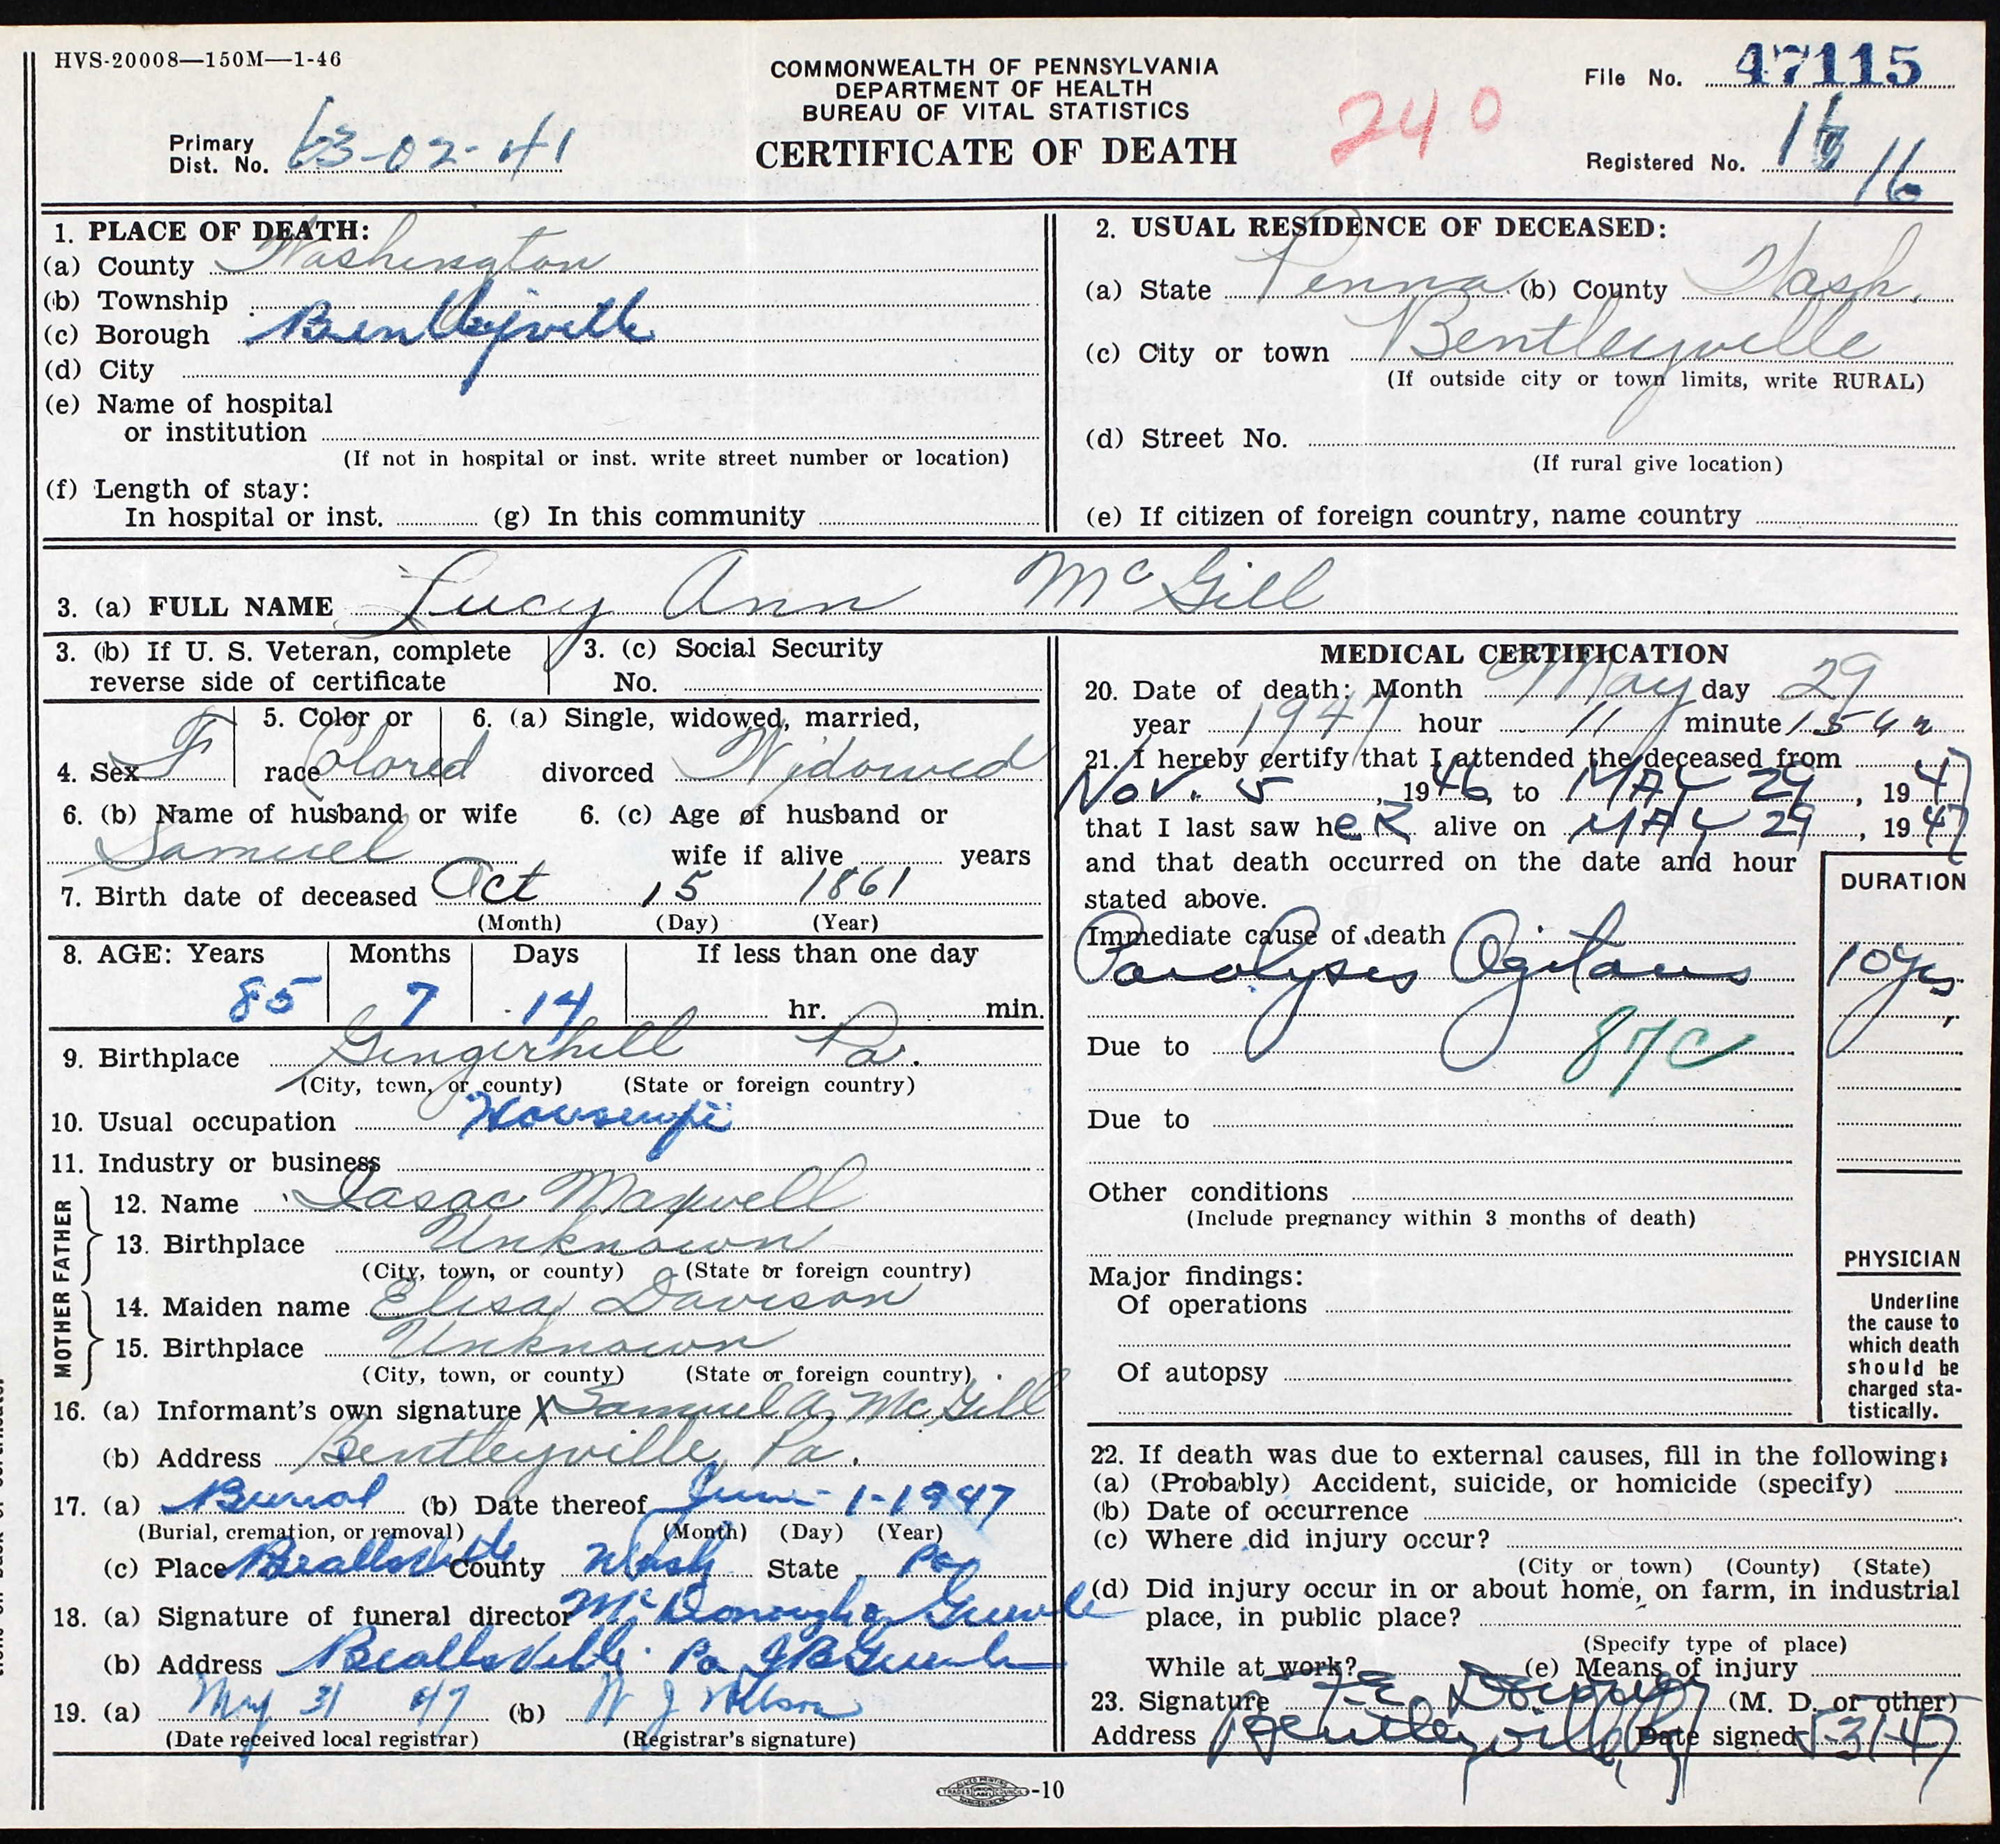 HVS-20008—150M—1-46
COMMONWEALTH OF PENNSYLVANIA
DEPARTMENT OF HEALTH
BUREAU OF VITAL STATISTICS
CERTIFICATE OF DEATH
240
File No. 47115
Primary Dist. No. 63-02-41
Registered No. 16
1. PLACE OF DEATH:
(a) County Washington
(b) Township
(c) Borough Bentleyville
(d) City
(e) Name of hospital
or institution
(If not in hospital or inst. write street number or location)
(f) Length of stay:
In hospital or inst. (g) In this community
2. USUAL RESIDENCE OF DECEASED:
(a) State Penna (b) County Wash.
(c) City or town Bentleyville
(If outside city or town limits, write RURAL)
(d) Street No.
(If rural give location)
(e) If citizen of foreign country, name country
3. (a) FULL NAME Lucy Ann McGill
3. (b) If U. S. Veteran, complete
reverse side of certificate
3. (c) Social Security
No.
4. Sex F
5. Color or
race Colored
6. (a) Single, widowed, married,
divorced Widowed
6. (b) Name of husband or wife
Samuel
6. (c) Age of husband or
wife if alive years
7. Birth date of deceased Oct 15 1861
(Month) (Day) (Year)
8. AGE: Years Months Days If less than one day
85 7 14 hr. min.
9. Birthplace Gingerhill Pa.
(City, town, or county) (State or foreign country)
10. Usual occupation Housewife
11. Industry or business
FATHER
12. Name Iasac Maxwell
13. Birthplace Unknown
(City, town, or county) (State or foreign country)
MOTHER
14. Maiden name Elisa Davison
15. Birthplace Unknown
(City, town, or county) (State or foreign country)
16. (a) Informant's own signature X Samuel A. McGill
(b) Address Bentleyville, Pa.
17. (a) Burial (b) Date thereof June 1-1947
(Burial, cremation, or removal) (Month) (Day) (Year)
(c) Place Beallsville County Wash State Pa
18. (a) Signature of funeral director McDonough &
(b) Address Beallsville Pa
19. (a) May 31 47 (b) W J
(Date received local registrar) (Registrar's signature)
MEDICAL CERTIFICATION
20. Date of death: Month May day 29
year 1947 hour 11 minute 15
21. I hereby certify that I attended the deceased from
Nov. 5, 1946, to MAY 29, 1947
that I last saw heR alive on MAY 29, 1947
and that death occurred on the date and hour
stated above.
DURATION
Immediate cause of death
Paralysis Agitans 10 yrs
Due to 87C
Due to
Other conditions
(Include pregnancy within 3 months of death)
Major findings:
Of operations
Of autopsy
PHYSICIAN
Underline
the cause to
which death
should be
charged sta-
tistically.
22. If death was due to external causes, fill in the following:
(a) (Probably) Accident, suicide, or homicide (specify)
(b) Date of occurrence
(c) Where did injury occur?
(City or town) (County) (State)
(d) Did injury occur in or about home, on farm, in industrial
place, in public place?
(Specify type of place)
While at work? (e) Means of injury
23. Signature (M. D. or other)
Address Bentleyville, Date signed 5-31-47
ALLIED PRINTING TRADES UNION LABEL COUNCIL -10